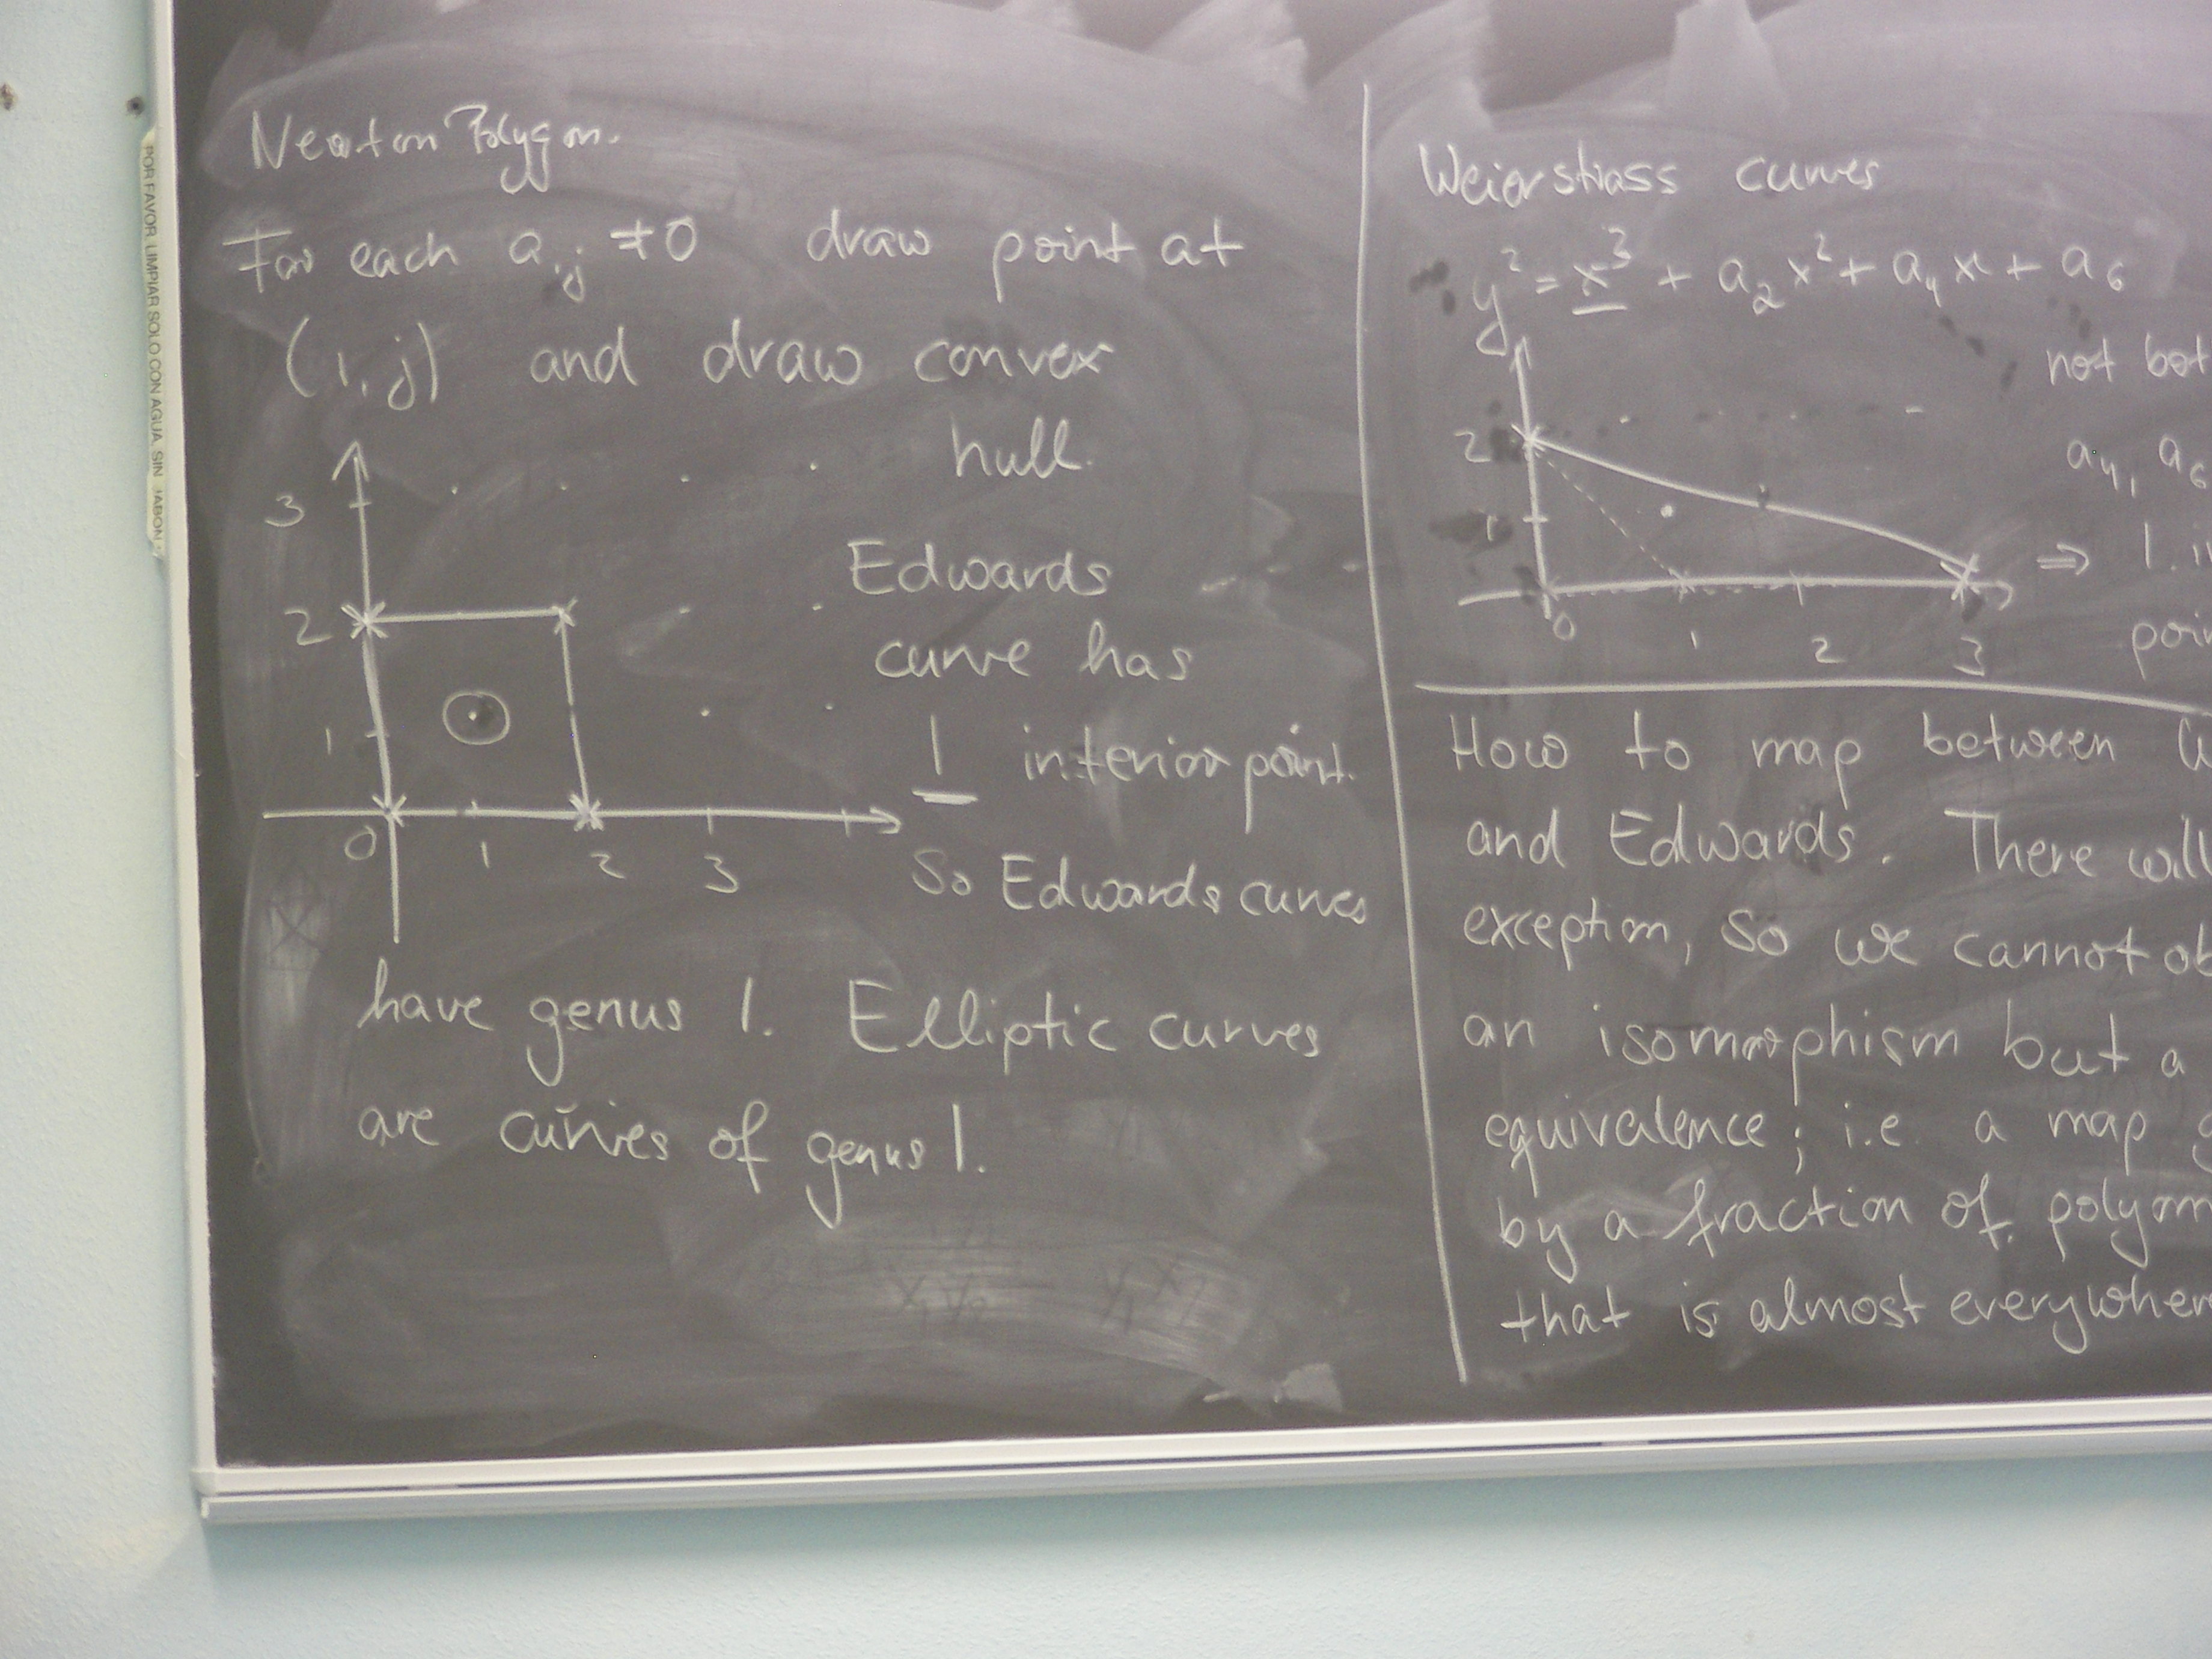 POR FAVOR LIMPIAR SOLO CON AGUA SIN JABON
Newton Polygon.
For each a_ij ≠ 0 draw point at
(i, j) and draw convex
hull.
3
2
1
0 1 2 3
Edwards
curve has
1 interior point.
So Edwards curves
have genus 1. Elliptic curves
are curves of genus 1.
Weierstrass curves
y² = x³ + a₂x² + a₄x + a₆
not
a₄, a₆
⇒ 1
2
1
0 1 2 3
How to map between
and Edwards. There will
exception, so we cannot
an isomorphism but a
equivalence; i.e. a map
by a fraction of
that is almost